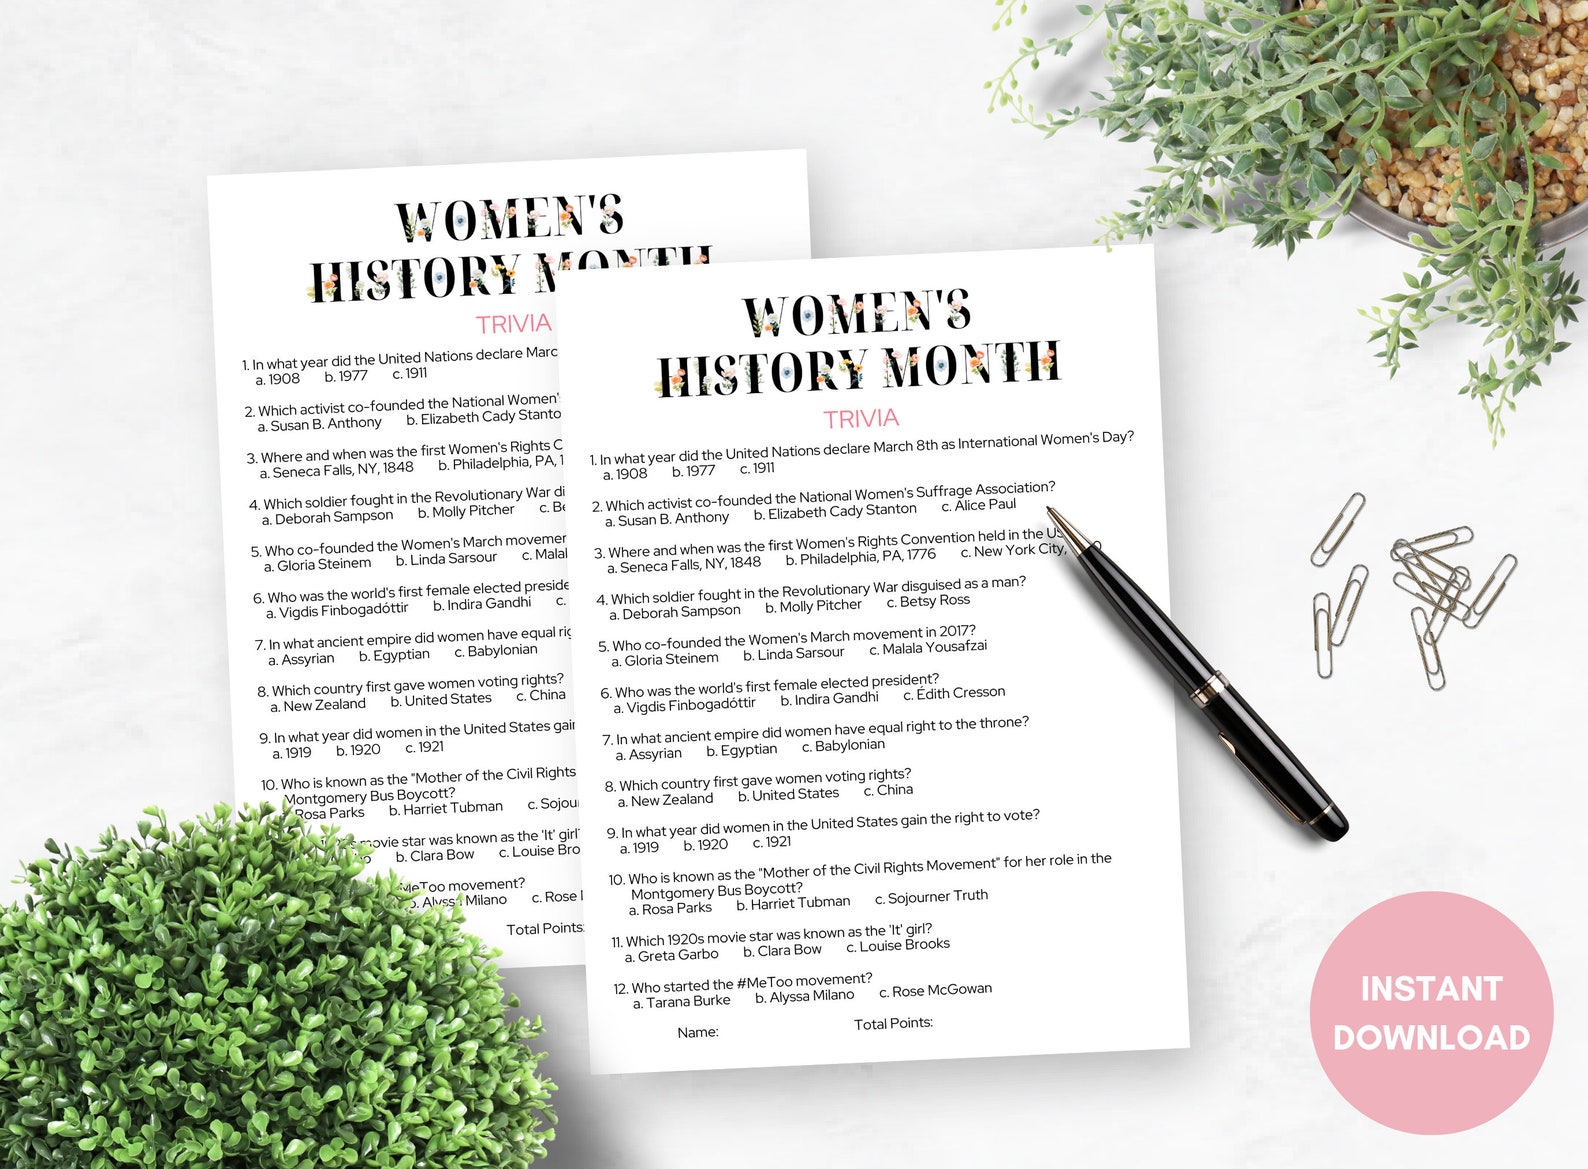 WOMEN'S
HISTORY MONTH
TRIVIA
1. In what year did the United Nations declare Marc
a. 1908 b. 1977 c. 1911
2. Which activist co-founded the National Women'
a. Susan B. Anthony b. Elizabeth Cady Stanto
3. Where and when was the first Women's Rights C
a. Seneca Falls, NY, 1848 b. Philadelphia, PA, 1
4. Which soldier fought in the Revolutionary War di
a. Deborah Sampson b. Molly Pitcher c. Be
5. Who co-founded the Women's March movemen
a. Gloria Steinem b. Linda Sarsour c. Malal
6. Who was the world's first female elected preside
a. Vigdis Finbogadóttir b. Indira Gandhi c.
7. In what ancient empire did women have equal rig
a. Assyrian b. Egyptian c. Babylonian
8. Which country first gave women voting rights?
a. New Zealand b. United States c. China
9. In what year did women in the United States gain
a. 1919 b. 1920 c. 1921
10. Who is known as the "Mother of the Civil Rights
Montgomery Bus Boycott?
Rosa Parks b. Harriet Tubman c. Sojour
movie star was known as the 'It' girl?
b. Clara Bow c. Louise Bro
MeToo movement?
b. Alyssa Milano c. Rose
Total Points:
WOMEN'S
HISTORY MONTH
TRIVIA
1. In what year did the United Nations declare March 8th as International Women's Day?
a. 1908 b. 1977 c. 1911
2. Which activist co-founded the National Women's Suffrage Association?
a. Susan B. Anthony b. Elizabeth Cady Stanton c. Alice Paul
3. Where and when was the first Women's Rights Convention held in the US
a. Seneca Falls, NY, 1848 b. Philadelphia, PA, 1776 c. New York City,
4. Which soldier fought in the Revolutionary War disguised as a man?
a. Deborah Sampson b. Molly Pitcher c. Betsy Ross
5. Who co-founded the Women's March movement in 2017?
a. Gloria Steinem b. Linda Sarsour c. Malala Yousafzai
6. Who was the world's first female elected president?
a. Vigdis Finbogadóttir b. Indira Gandhi c. Édith Cresson
7. In what ancient empire did women have equal right to the throne?
a. Assyrian b. Egyptian c. Babylonian
8. Which country first gave women voting rights?
a. New Zealand b. United States c. China
9. In what year did women in the United States gain the right to vote?
a. 1919 b. 1920 c. 1921
10. Who is known as the "Mother of the Civil Rights Movement" for her role in the
Montgomery Bus Boycott?
a. Rosa Parks b. Harriet Tubman c. Sojourner Truth
11. Which 1920s movie star was known as the 'It' girl?
a. Greta Garbo b. Clara Bow c. Louise Brooks
12. Who started the #MeToo movement?
a. Tarana Burke b. Alyssa Milano c. Rose McGowan
Name: Total Points:
INSTANT
DOWNLOAD